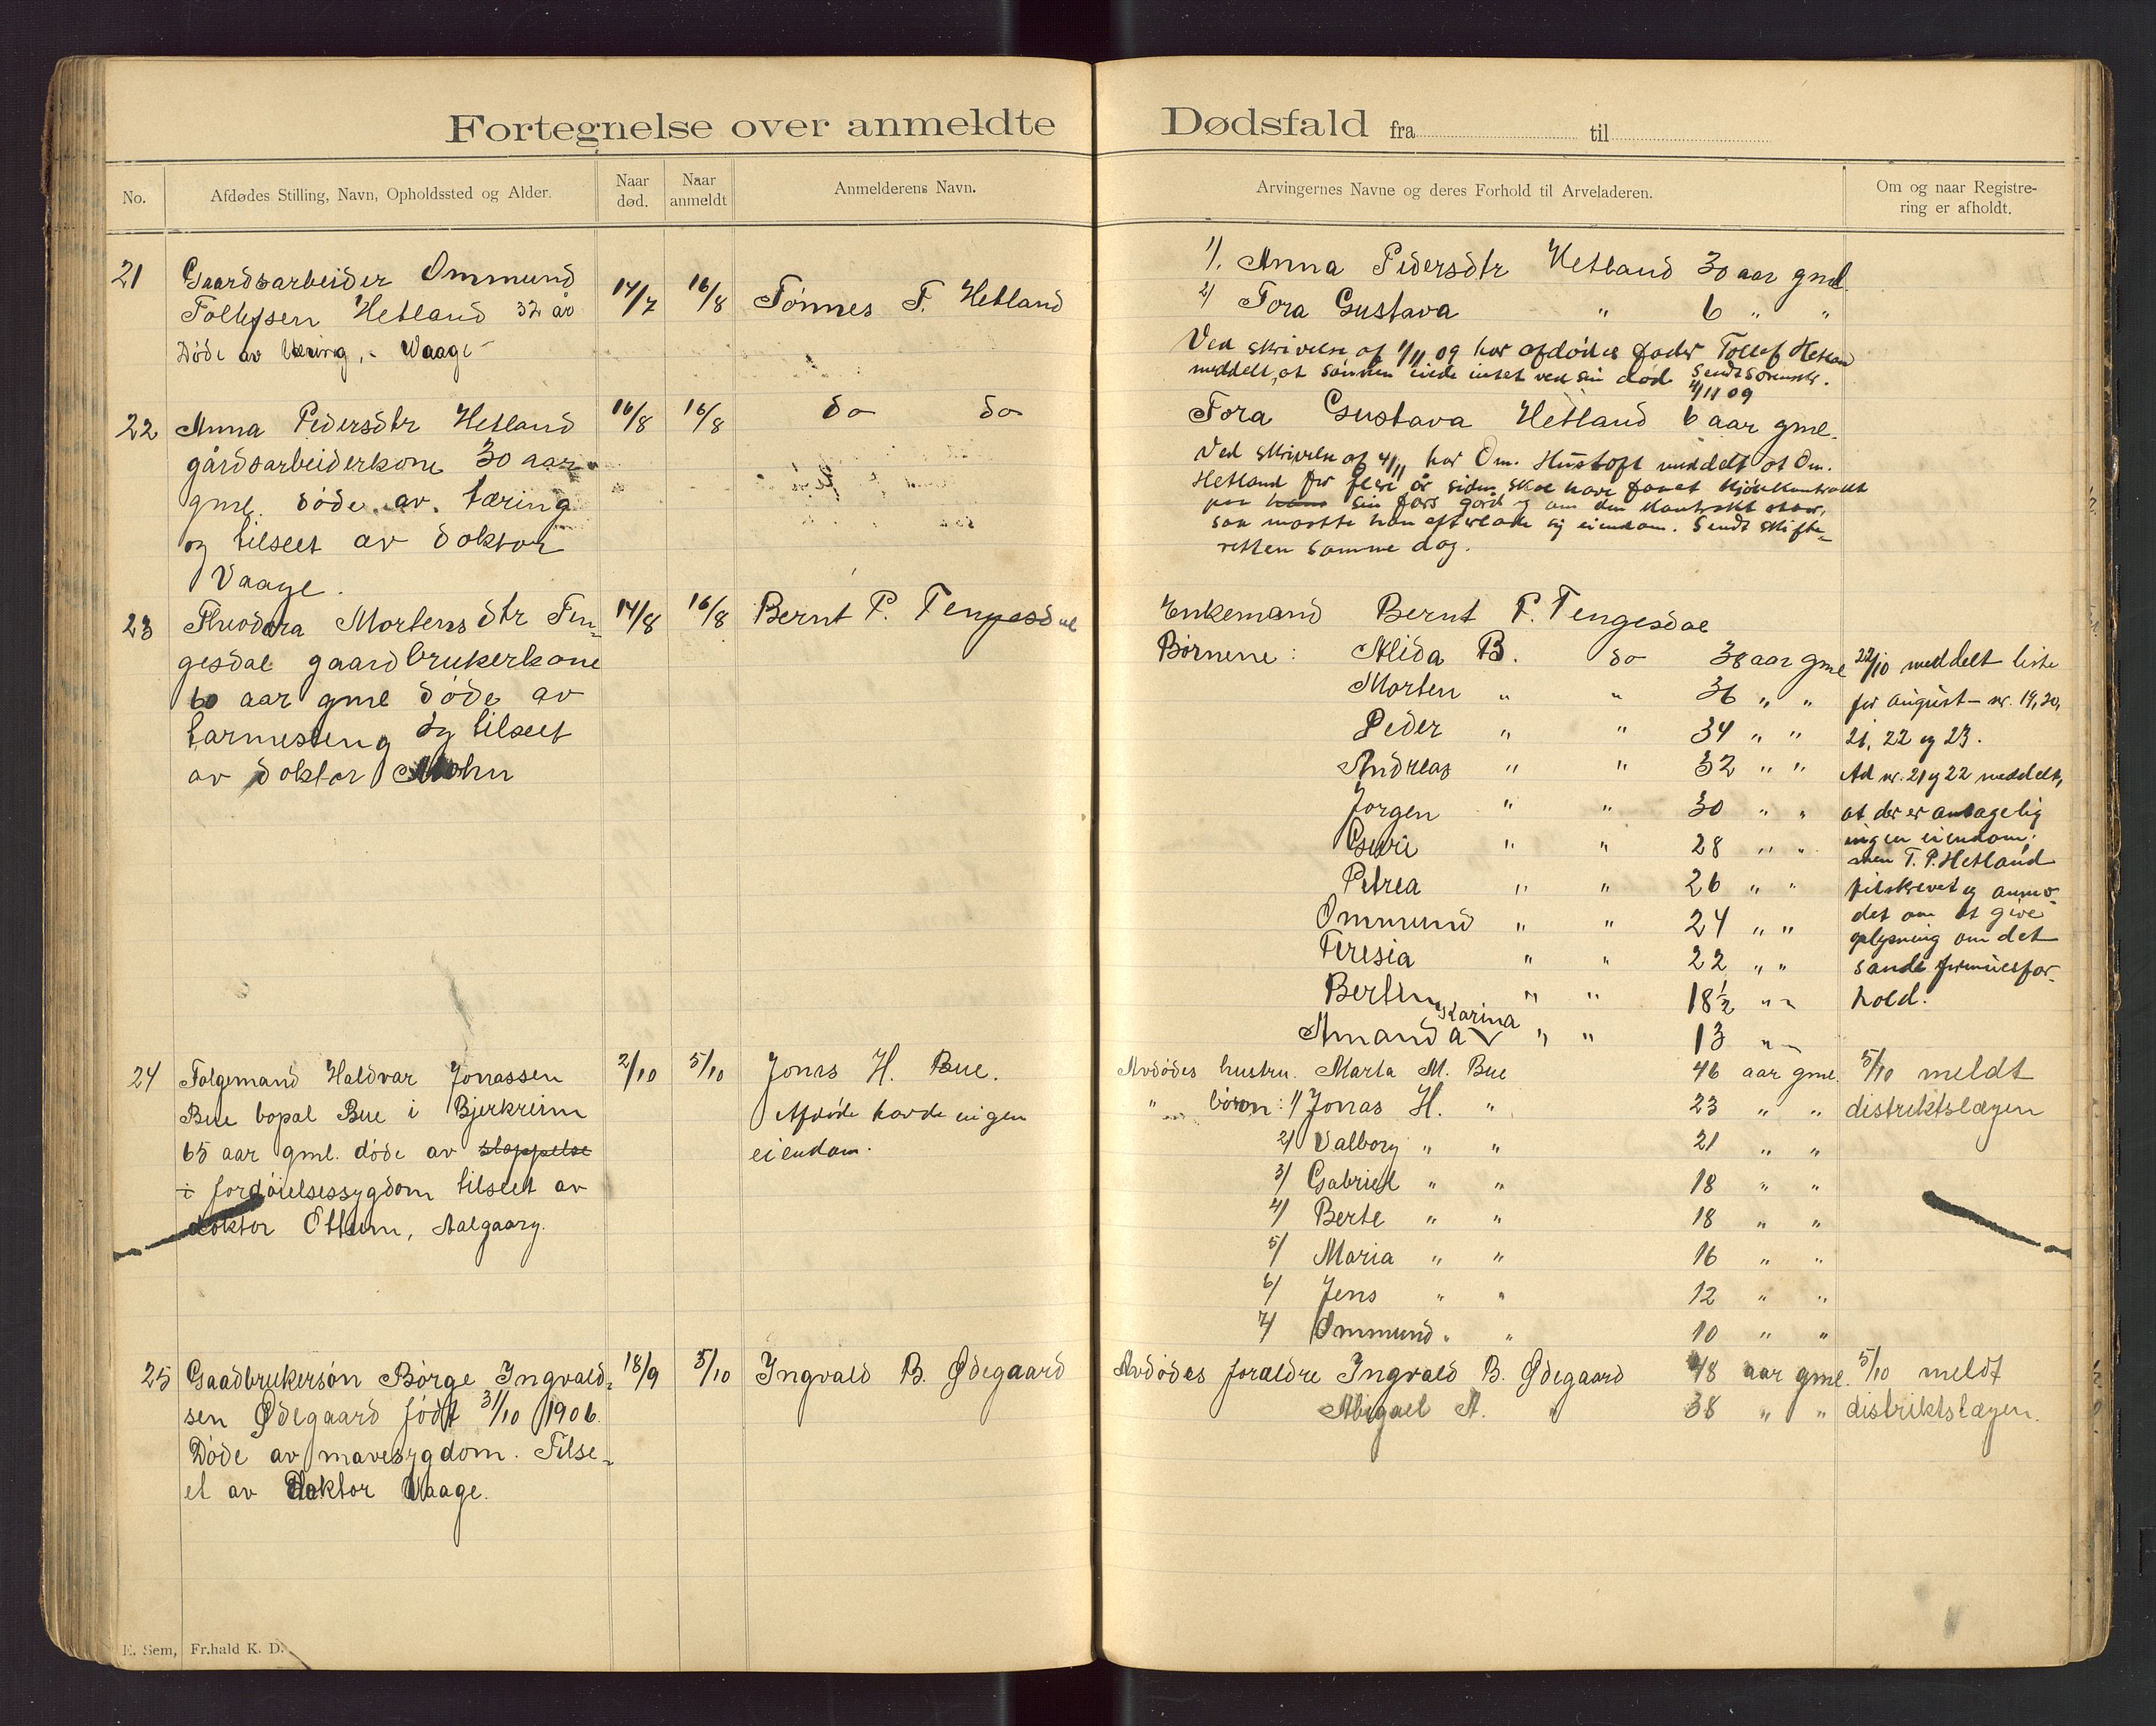 Fortegnelse over anmeldte Dødsfald fra til
No.
Afdødes Stilling, Navn, Opholdssted og Alder.
Naar død.
Naar anmeldt
Anmelderens Navn.
Arvingernes Navne og deres Forhold til Arveladeren.
Om og naar Registre-
ring er afholdt.
21 Gaardsarbeider Ommund
Tollefsen Hetland 32 år
Døde av tæring, - Waage -
17/7 16/8 Tønnes T. Hetland
1/. Anna Pedersdtr Hetland 30 aar gml.
2/ Tora Gustava " 6 " "
Ved skrivelse af 1/11 09 har afdødes fader Tollef Hetland
meddelt, at sønnen eiede intet ved sin død. Sendt sorenskr.
4/11 09
22 Anna Pedersdtr Hetland
gårdsarbeiderkone 30 aar
gml. døde av. tæring
og tilseet av doktor
Vaage.
16/8 16/8 do do
Tora Gustava Hetland 6 aar gml.
Ved skrivelse af 4/11 har Om. Hustoft meddelt at Om.
Hetland for flere år siden skal have faaet kjøbekontrakt
paa hans sin fars gård og om den kontrakt staar,
saa maatte han efterlade sig eiendom. Sendt skifte-
retten samme dag.
23 Theodora Mortensdtr Ten-
gesdal gaardbrukerkone
60 aar gml døde av
tarmesteng og tilseet
av doktor Mohn
14/8 16/8 Bernt P. Tengesdal
Enkemand Bernt P. Tengesdal
Børnene: Alida B. do 38 aar gml
Morten " " 36 " "
Peder " " 34 " "
Andreas " " 32 " "
Jørgen " " 30 " "
Guri " " 28 " "
Petrea " " 26 " "
Ommund " " 24 " "
Teresia " " 22 " "
Bertin " " 18½ " "
Karina
Amanda " " 13 " "
22/10 meddelt liste
for august - nr. 19, 20,
21, 22 og 23.
Ad nr. 21 og 22 meddelt,
at der er antagelig
ingen eiendom;
men T. P. Hetland
tilskrevet og anmo-
det om at give
oplysning om det
sande formuesfor-
hold.
24 Folgemand Haldvar Jonassen
Bue bopal Bue i Bjerkreim
65 aar gml. døde av stoppelse
i fordøielsessygdom tilseet av
doktor Ottum, Aalgaarg.
2/10 5/10 Jonas H. Bue.
Afdøde havde ingen
eiendom.
Avdødes hustru. Marta M. Bue 46 aar gml.
" børn: 1/ Jonas H. " 23 " "
2/ Valborg " " 21 " "
3/ Gabriel " " 18 " "
4/ Berte " " 18 " "
5/ Maria " " 16 " "
6/ Jens " " 12 " "
7/ Ommund " " 10 " "
5/10 meldt
distriktslægen
25 Gaadbrukersøn Børge Ingvald-
sen Ødegaard født 31/10 1906.
Døde av mavesygdom. Tilse-
et av Doktor Vaage.
18/9 5/10 Ingvald B. Ødegaard
Avdødes foraldre Ingvald B. Ødegaard 48 aar gml.
Abigael A. " 38 " "
5/10 meldt
distriktslægen.
E. Sem, Fr.hald K. D.